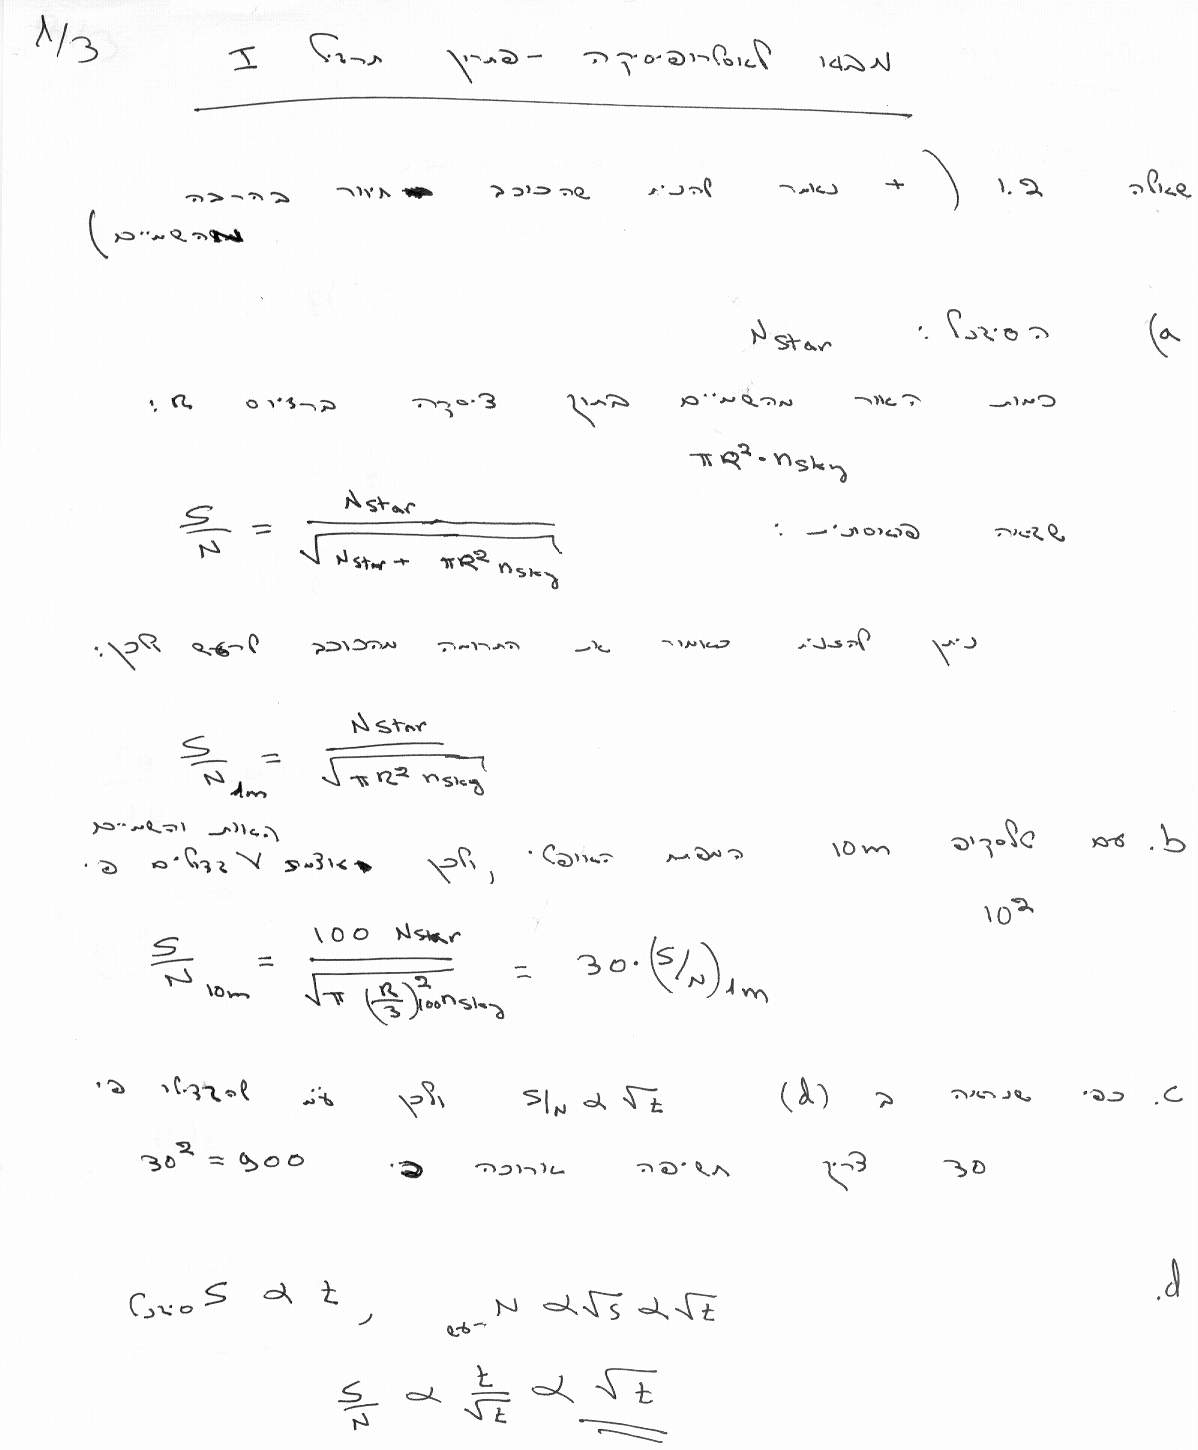 1/3
מבוא לאסטרופיסיקה - פתרון תרגיל I
שאלה 1.2 (+ נאמר להניח שהכוכב חיוור בהרבה
מהשמיים)
a) הסיגנל: Nstar
כמות האור מהשמיים בתוך דיסקה ברדיוס R:
πR²·nsky
שגיאה פואסונית: S/N = Nstar / √(Nstar + πR² nsky)
ניתן להזניח כאמור את התרומה מהכוכב לרעש ולכן:
S/N 1m = Nstar / √(πR² nsky)
האות והשמיים
b. עם טלסקופ 10m המפתח האופטי, ולכן עוצמת גדולים פי
10²
S/N 10m = 100 Nstar / √(π (R/3)² 100 nsky) = 30·(S/N)1m
c. כפי שנראה ב (d) S/N α √t ולכן ע"מ להגדילו פי
30 צריך חשיפה ארוכה פי 30² = 900
d.
סיגנל S α t, רעש N α √S α √t
S/N α t/√t α √t